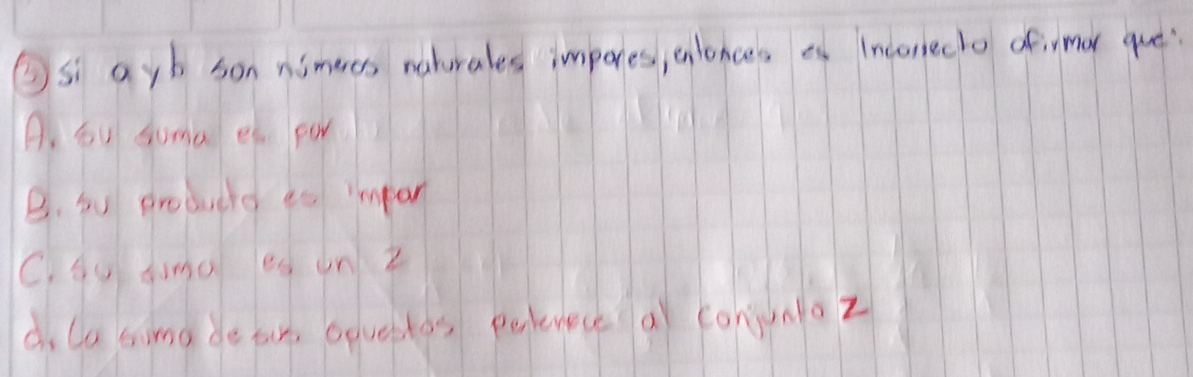 ③ si a y b son números naturales impares, entonces es incorrecto afirmar que:
A. su suma es par
B. su producto es impar
C. su suma es un Z
d. La suma de sus opuestos pertenece al conjunto Z